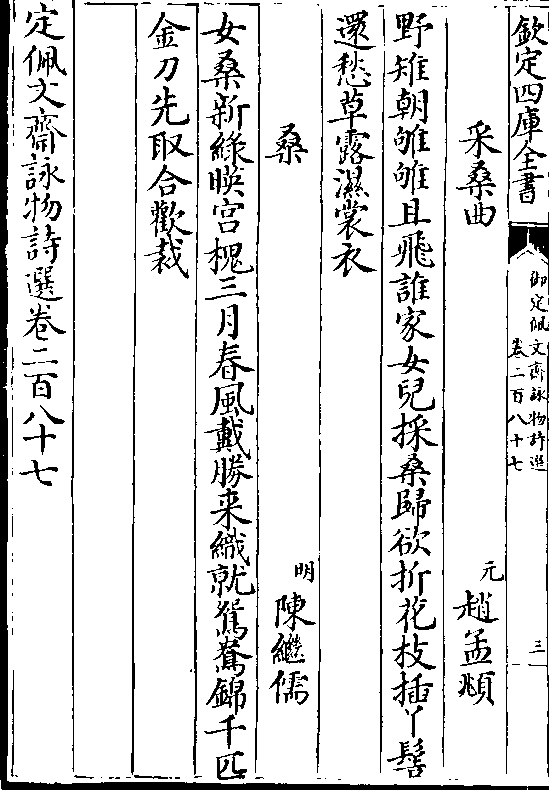 欽定四庫全書
御定佩文齋詠物詩選
卷二百八十七
三
采桑曲
元
趙孟頫
野雉朝雊雊且飛誰家女兒採桑歸欲折花枝插丫髻
還愁草露濕裳衣
桑
明
陳繼儒
女桑新綠暎宮槐三月春風戴勝来織就鴛鴦錦千匹
金刀先取合歡裁
定佩文齋詠物詩選卷二百八十七